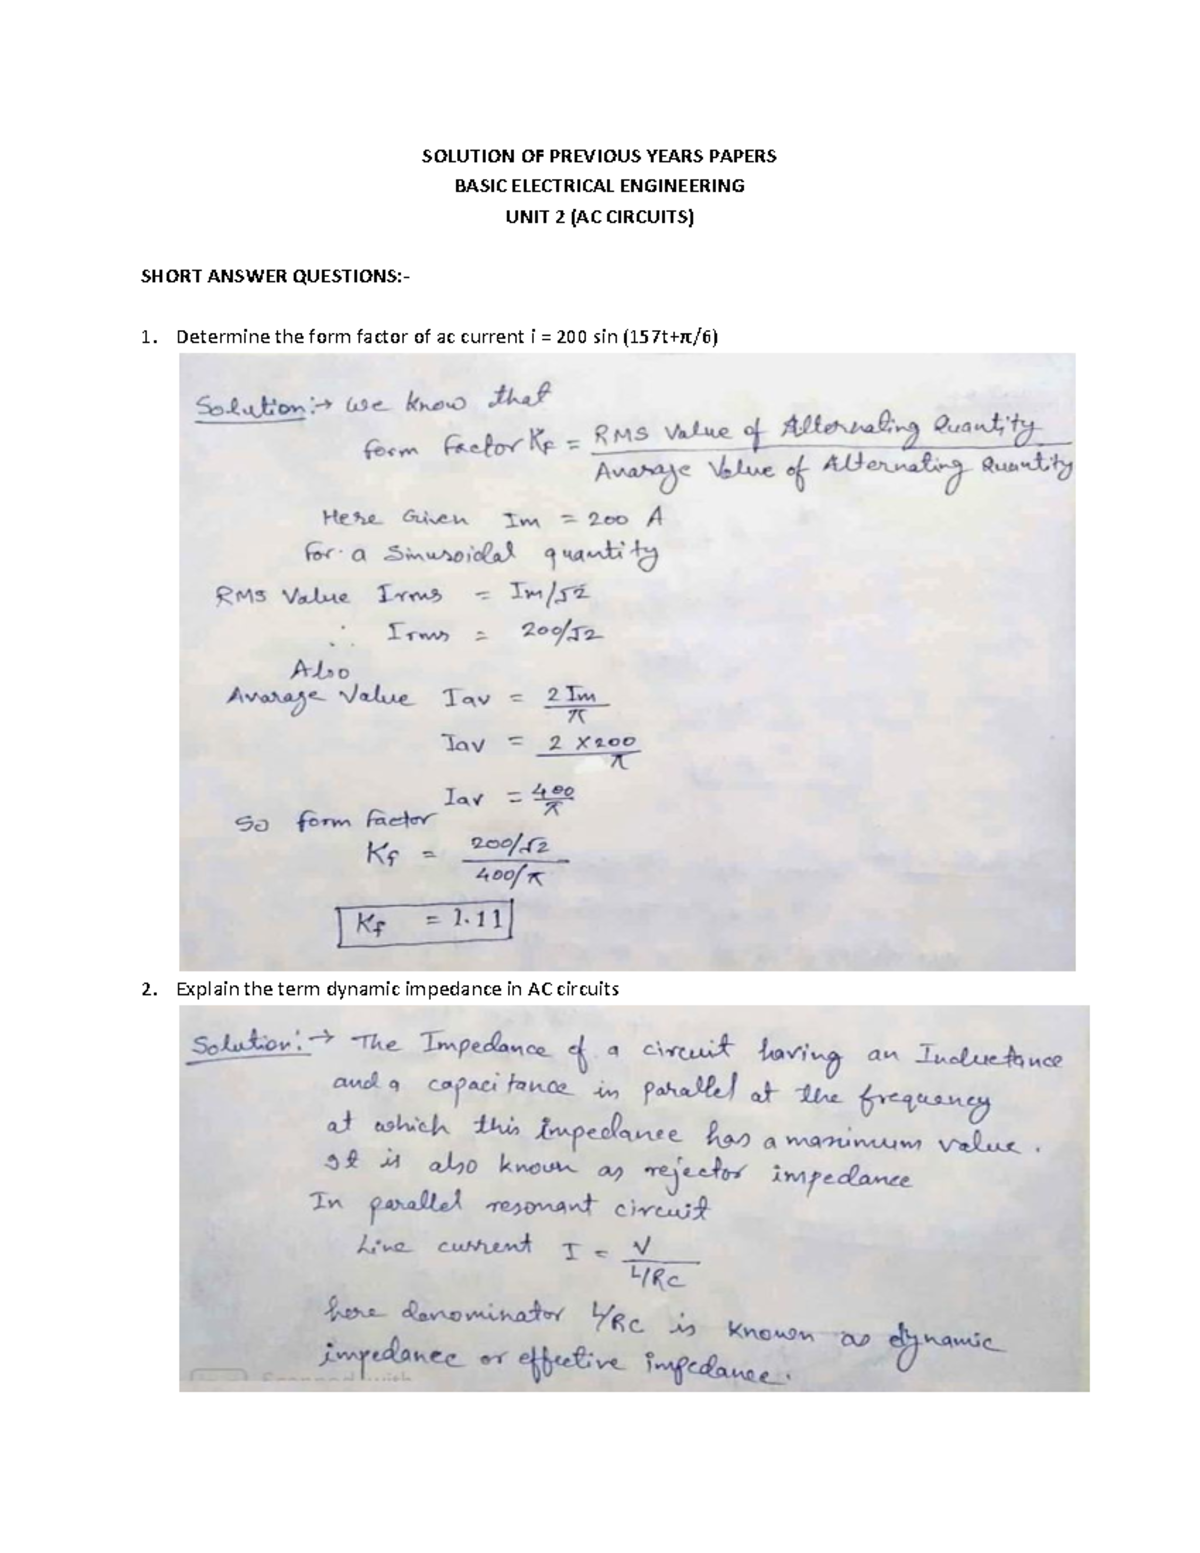 SOLUTION OF PREVIOUS YEARS PAPERS
BASIC ELECTRICAL ENGINEERING
UNIT 2 (AC CIRCUITS)
SHORT ANSWER QUESTIONS:-
1. Determine the form factor of ac current i = 200 sin (157t+π/6)
Solution:→ We know that
form factor Kf = RMS Value of Alternating Quantity
Avarage Value of Alternating Quantity
Here Given Im = 200 A
for a Sinusoidal quantity
RMS Value Irms = Im/√2
∴ Irms = 200/√2
Also
Avarage Value Iav = 2 Im
π
Iav = 2 X 200
π
Iav = 400
π
So form factor
Kf = 200/√2
400/π
Kf = 1.11
2. Explain the term dynamic impedance in AC circuits
Solution:→ The Impedance of a circuit having an Inductance
and a capacitance in parallel at the frequency
at which this impedance has a maximum value.
It is also known as rejector impedance
In parallel resonant circuit
Line current I = V
L/RC
here denominator L/RC is known as dynamic
impedance or effective impedance.